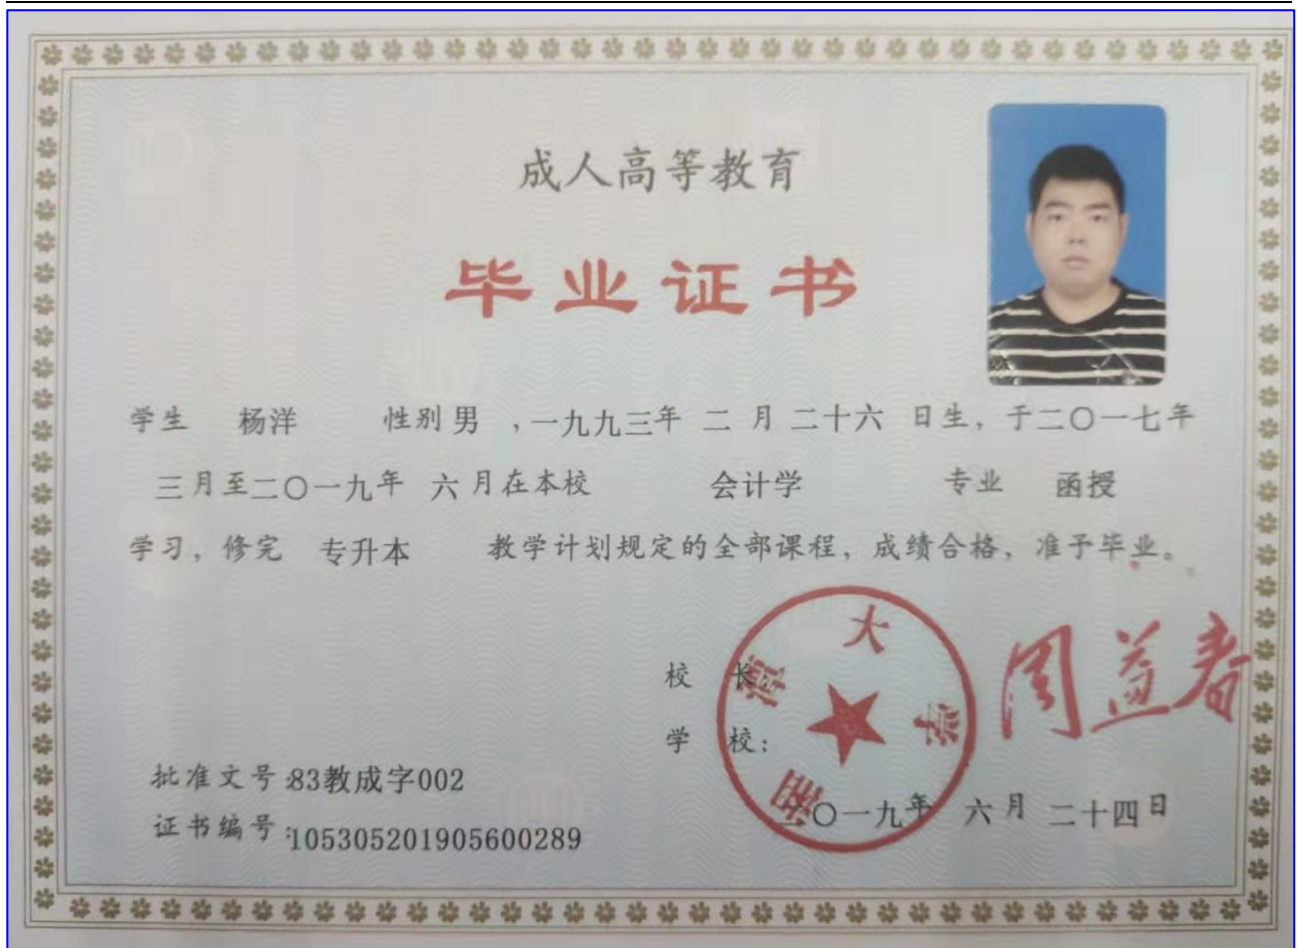 成人高等教育
毕业证书
学生 杨洋 性别 男 ,一九九三年 二 月 二十六 日生, 于二〇一七年
三月至二〇一九年 六 月在本校 会计学 专业 函授
学习, 修完 专升本 教学计划规定的全部课程, 成绩合格, 准予毕业。
校 长
周益春
学 校:
湘潭大学
批准文号:83教成字002
二〇一九年 六月 二十四日
证书编号:105305201905600289